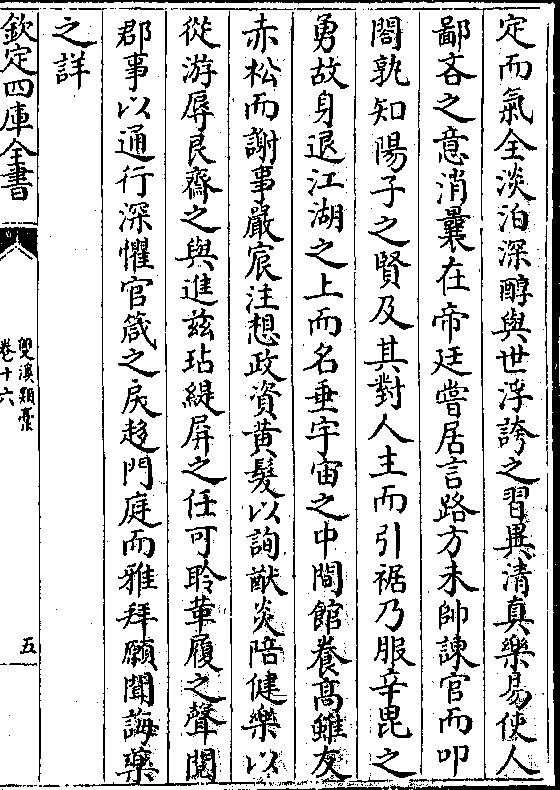 定而氣全淡泊深醇與世浮誇之習異清真樂易使人
鄙吝之意消曩在帝廷嘗居言路方未帥諫官而叩
閤孰知陽子之賢及其對人主而引裾乃服辛毘之
勇故身退江湖之上而名垂宇宙之中閒館養髙雖友
赤松而謝事嚴宸注想政資黄髮以詢猷炎陪健樂以
從游辱艮齋之與進兹玷緹屏之任可聆華履之聲閱
郡事以通行深懼官箴之戾趍門庭而雅拜願聞誨藥
之詳
欽定四庫全書
雙溪類藁
卷十六
五